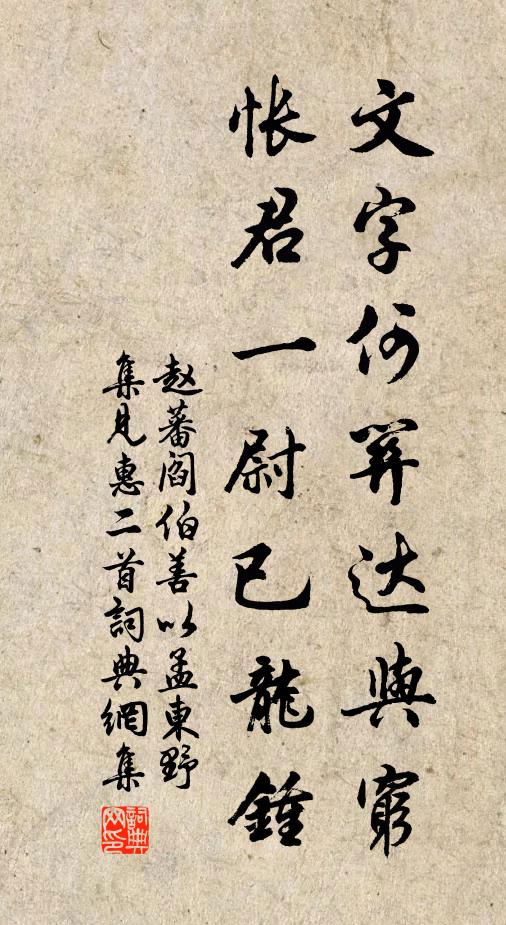 文字何關达與窮
悵君一尉已龍鍾
赵蕃阎伯善以孟東野
集見惠二首詞典網集
詞典网印